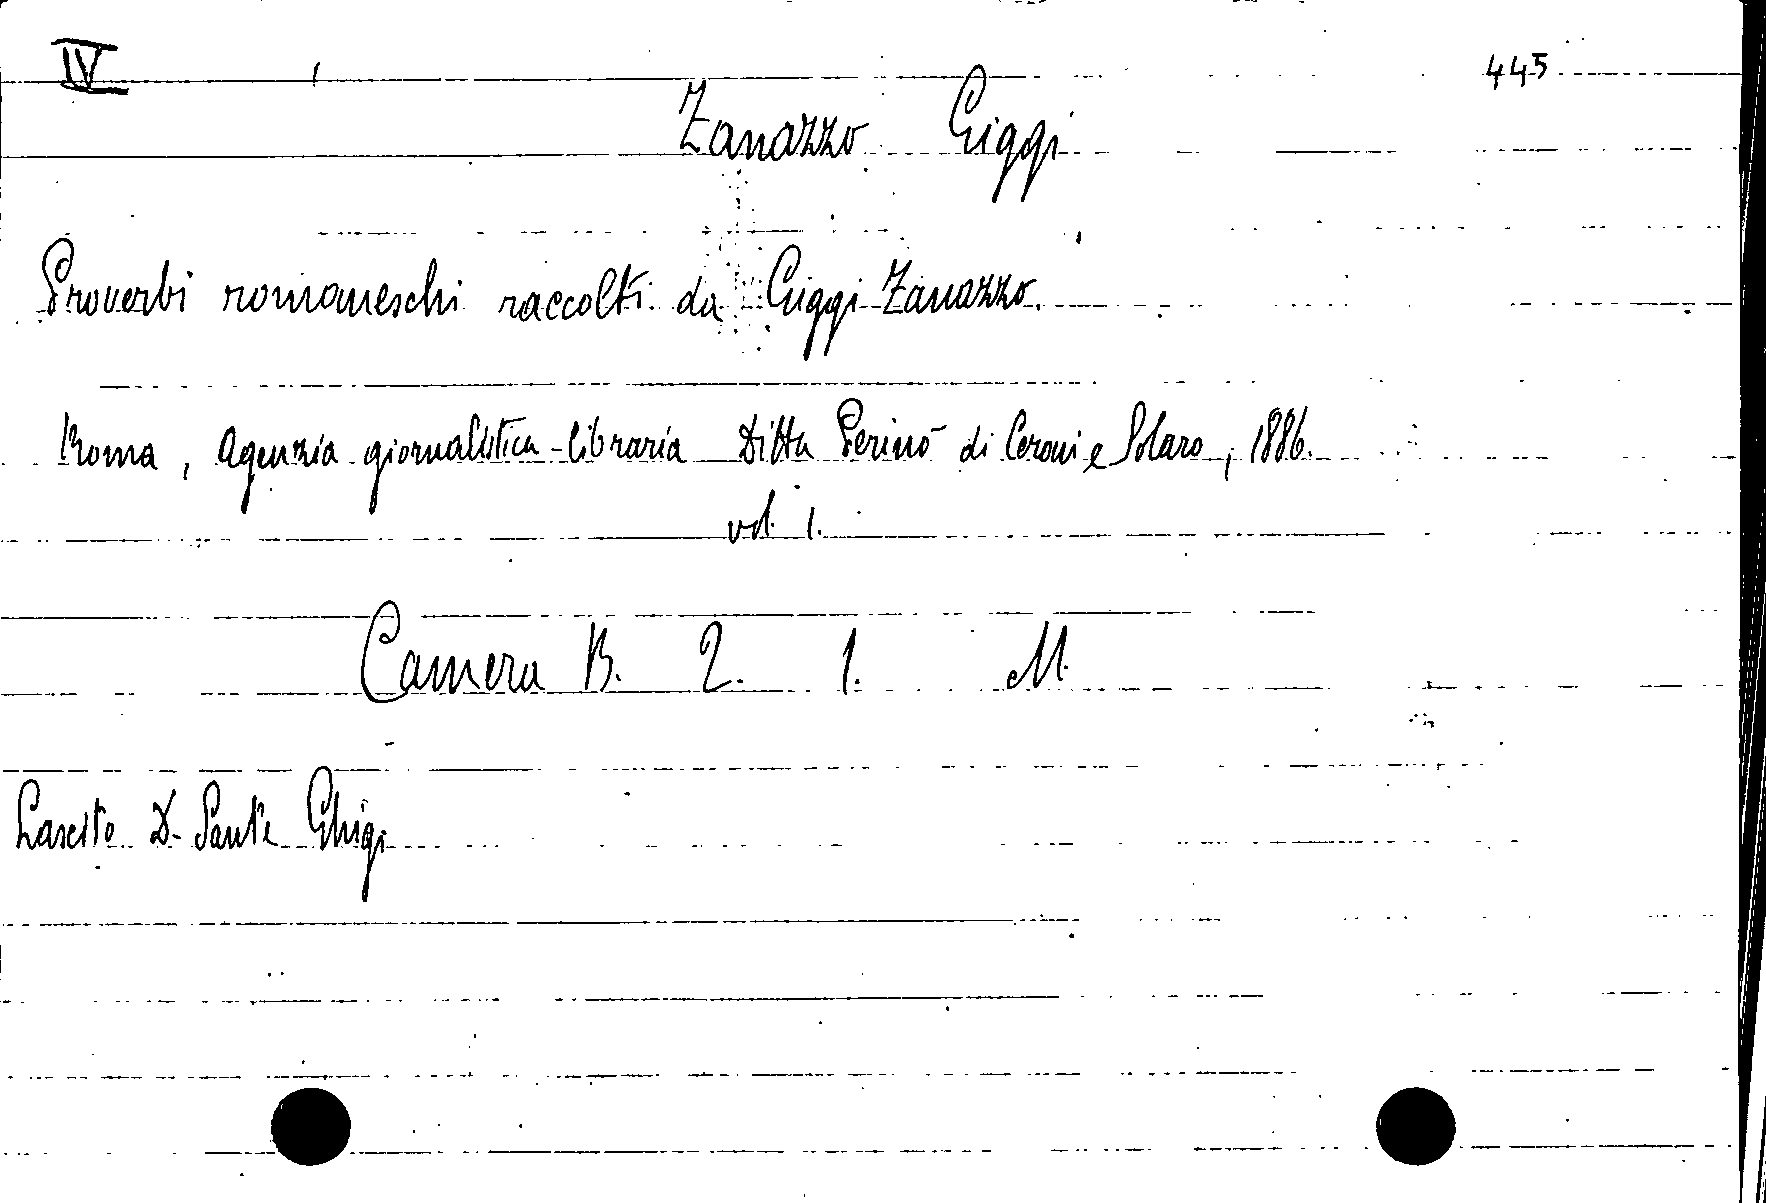 IV 445
Zanazzo Giggi
Proverbi romaneschi raccolti da Giggi Zanazzo.
Roma, Agenzia giornalistica-libraria Ditta Perino di Ceroni e Solaro, 1886.
vol. 1.
Camera B. 2. 1. M.
Lascito D. Sante Ghigi